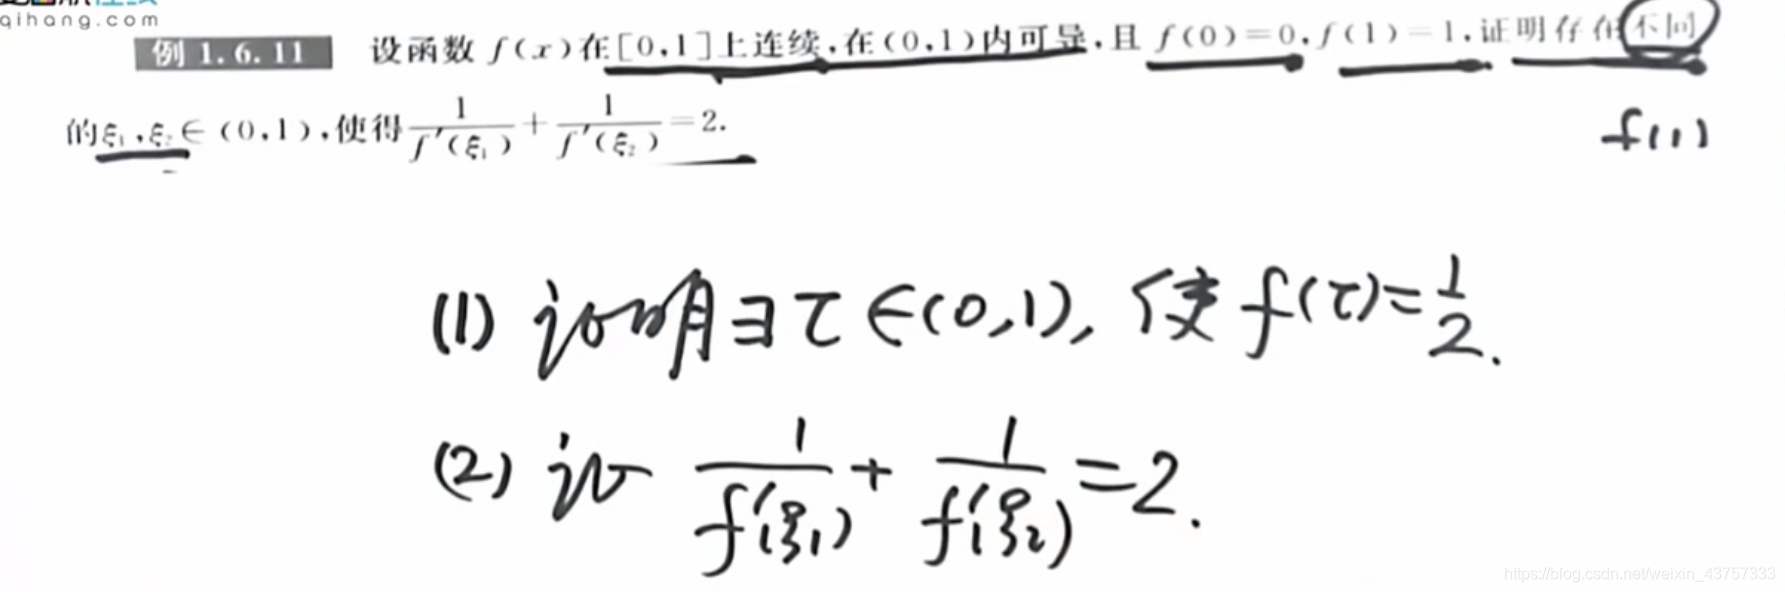 qihang.com
例 1.6.11 设函数 f(x)在[0,1]上连续,在(0,1)内可导,且 f(0)=0,f(1)=1,证明存在不同
的ξ₁,ξ₂∈(0,1),使得 1/f′(ξ₁) + 1/f′(ξ₂) =2.
f(1)
(1) 证明∃τ∈(0,1), 使 f(τ)=1/2.
(2) 证 1/f′(ξ₁) + 1/f′(ξ₂) =2.
https://blog.csdn.net/weixin_43757333